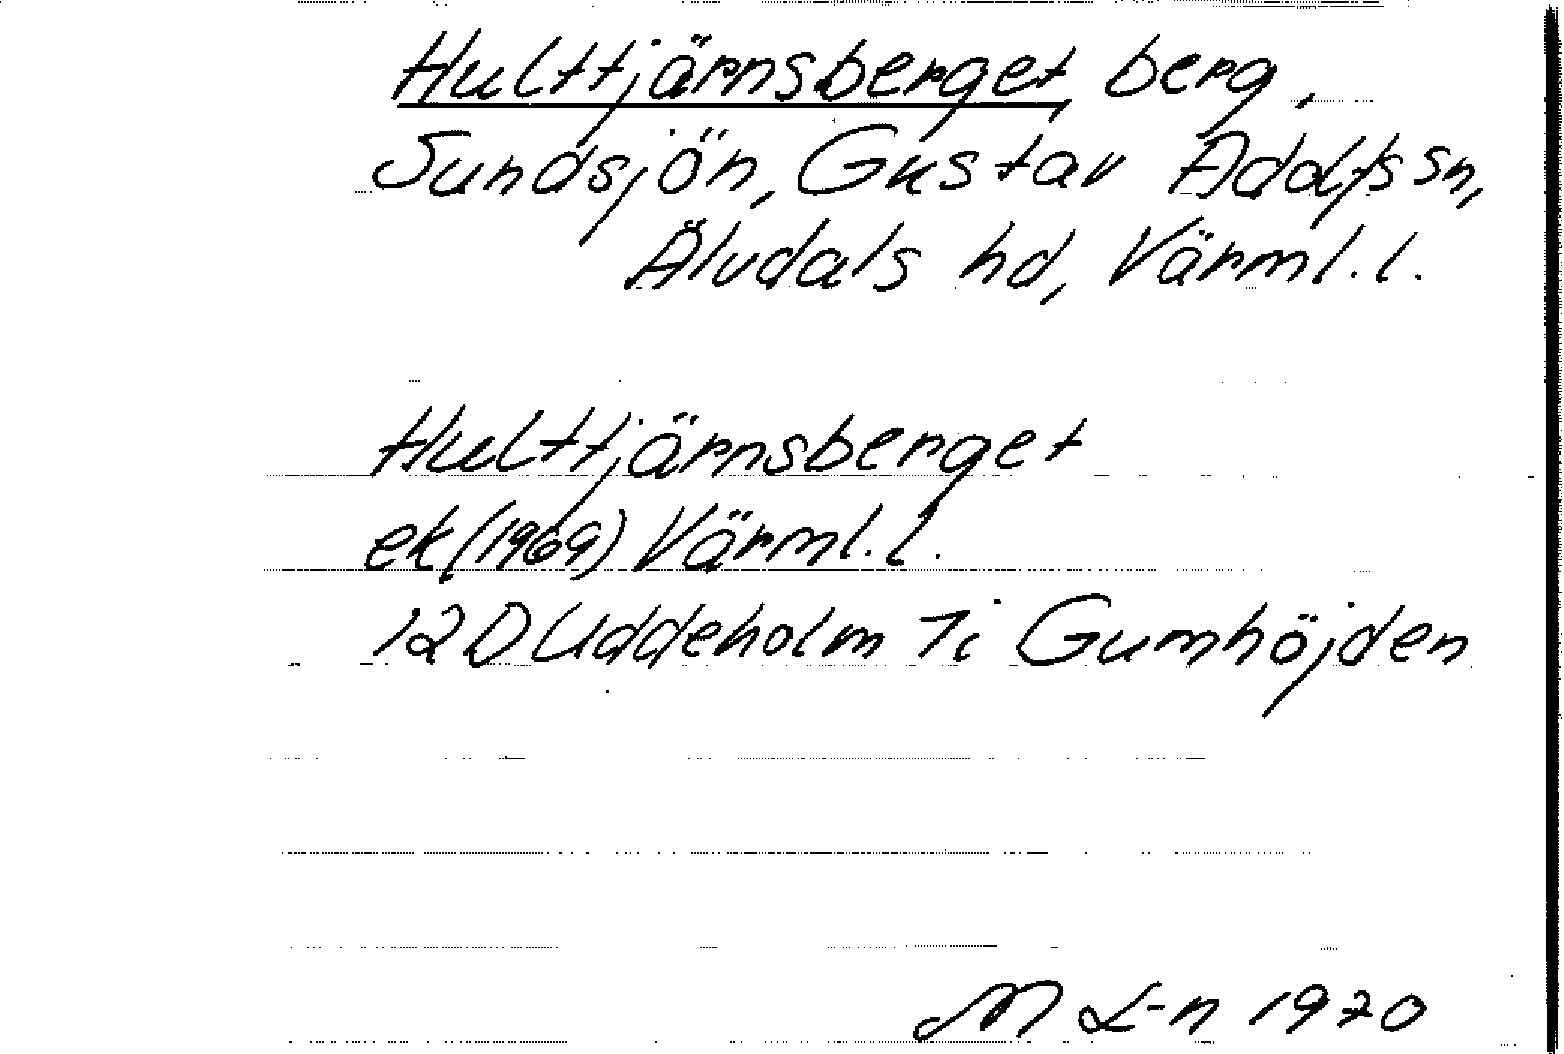 Hulttjärnsberget, berg,
Sundsjön, Gustav Adolfs sn,
Älvdals hd, Värml. l.
Hulttjärnsberget
ek (1969) Värml. l.
12D Uddeholm 7i Gumhöjden
M L-n 1970